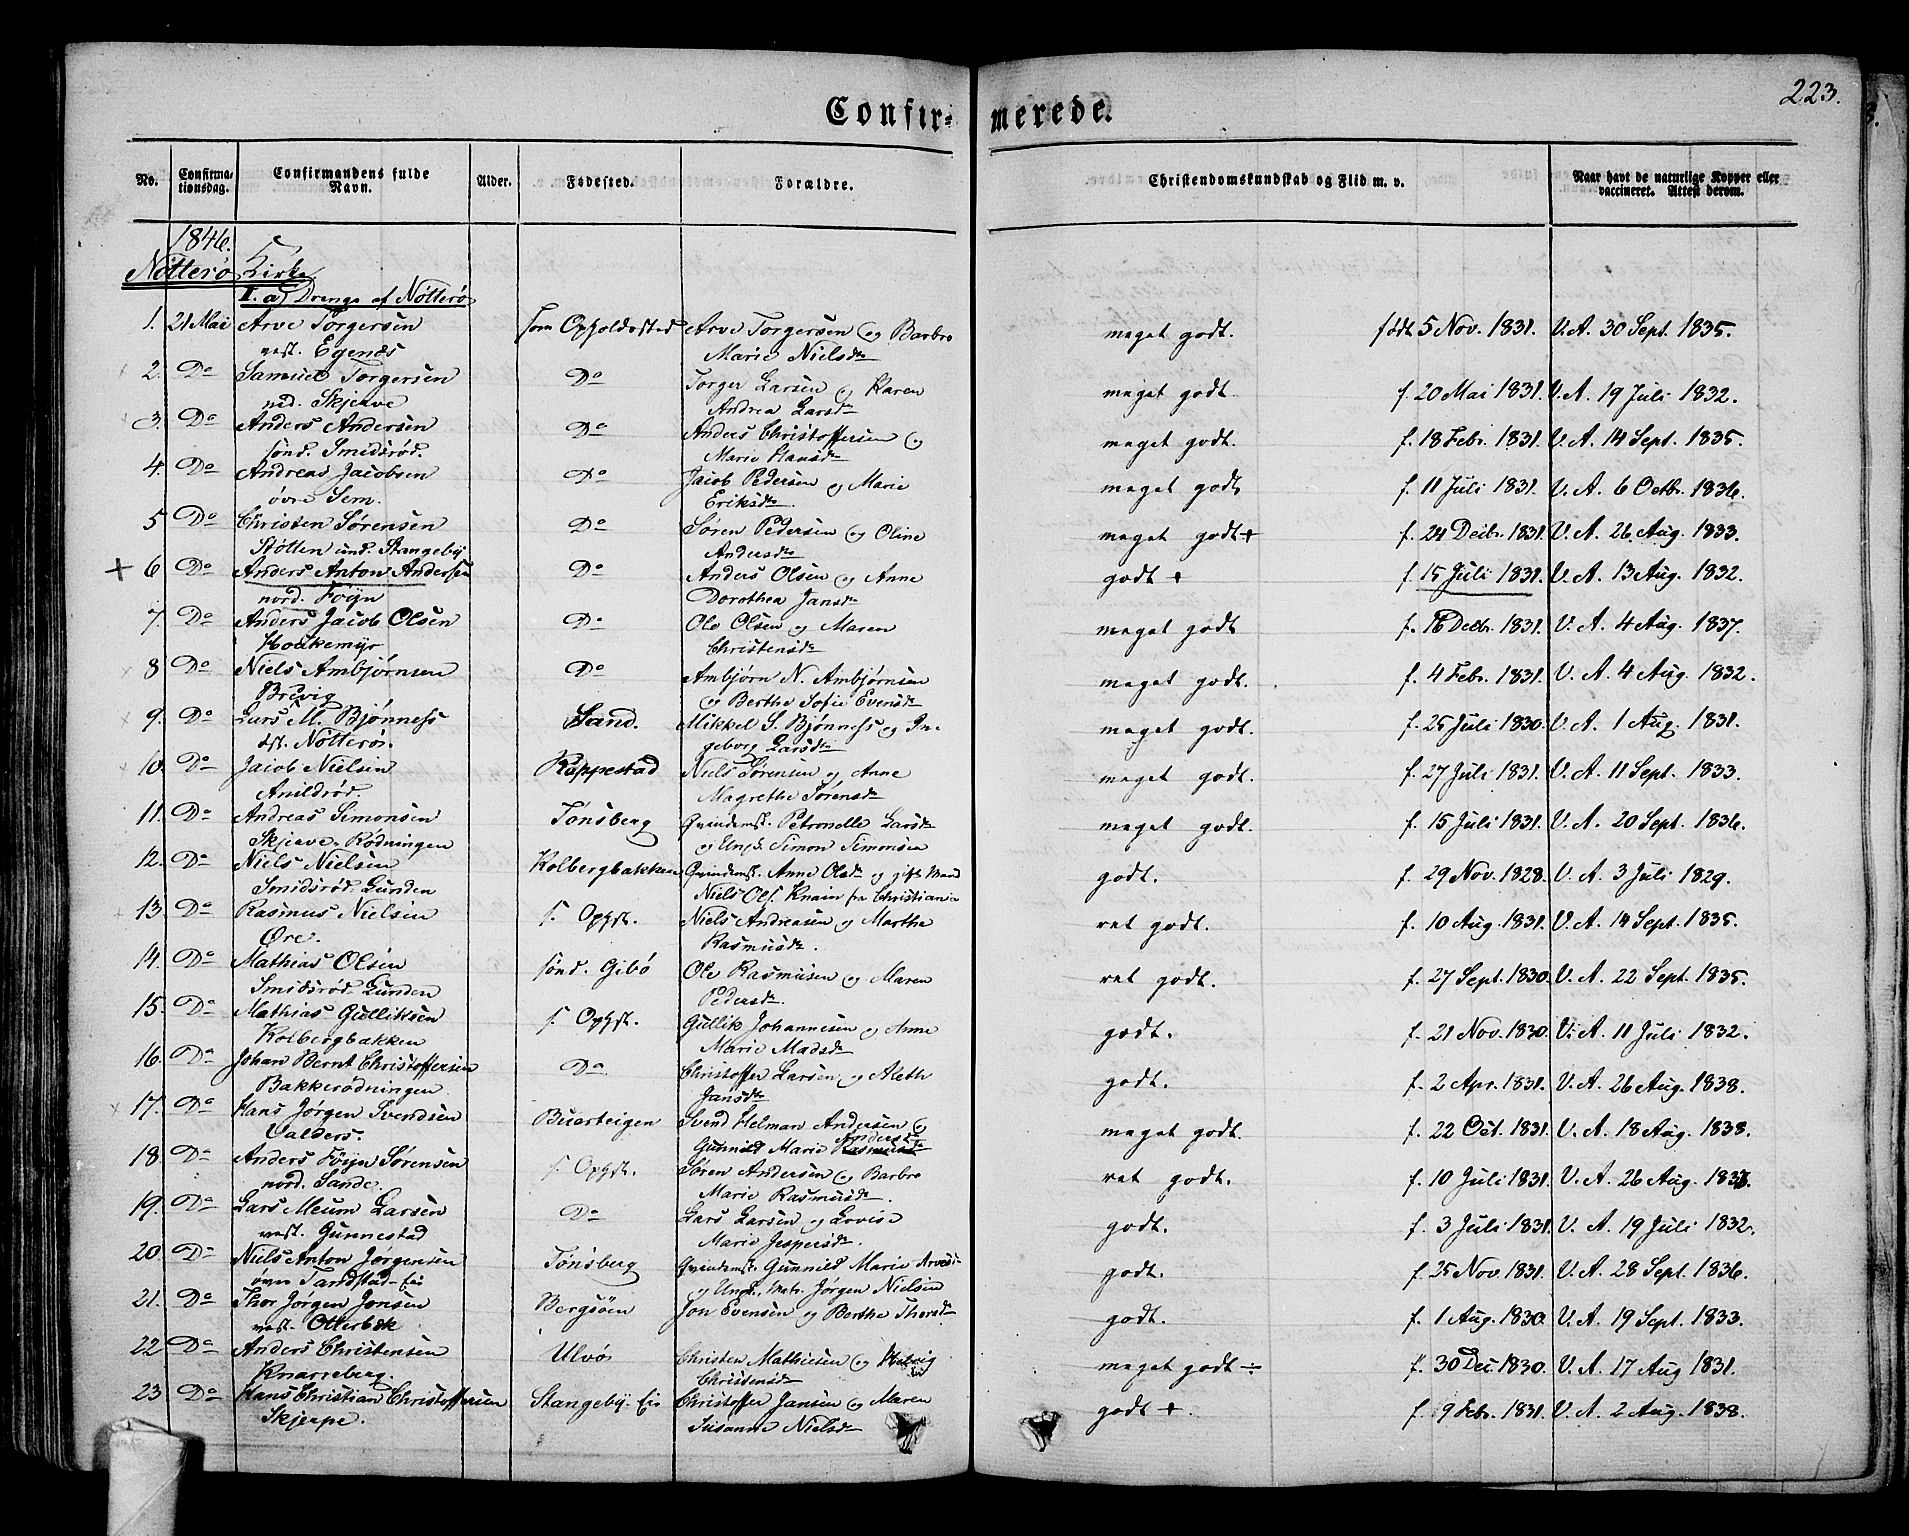 223.
Confirmerede.
No. Confirmationsdag. Confirmandens fulde Navn. Alder. Fødested. Forældre. Christendomskundskab og Flid m. v. Naar havt de naturlige Kopper eller vaccineret. Attest derom.
1846.
Nötterö Kirke.
I. a) Drenge af Nötterö
1. 21 Mai Arve Torgersen som Opholdssted Arve Torgersen og Barbro meget godt. født 5 Nov. 1831. V. A. 30 Sept. 1835.
vest. Egenæs Marie Nielsdr
2. Do Samuel Torgersen Do Torger Larsen og Karen meget godt. f. 20 Mai 1831. V. A. 19 Juli 1832.
ned. Skjerve Andrea Larsdr
3. Do Anders Andersen Do Anders Christoffersen og meget godt. f. 18 Febr. 1831. V. A. 14 Sept. 1835.
sönd. Smidsröd. Marie Hansdr
4. Do Andreas Jacobsen Do Jacob Pedersen og Marie meget godt f. 11 Juli 1831. V. A. 6 Octbr. 1836.
övre Sem. Eriksdr
5 Do Christen Sörensen Do Sören Pedersen og Oline meget godt + f. 24 Decbr. 1831. V. A. 26 Aug. 1833.
Stötten und. Stangeby Andersdr
+ 6 Do Anders Anton Andersen Do Anders Olsen og Anne godt + f. 15 Juli 1831. V. A. 13 Aug. 1832.
nord. Föyn Dorothea Jansdr
7. Do Anders Jacob Olsen Do Ole Olsen og Maren meget godt f. 16 Decbr. 1831. V. A. 4 Aug. 1837.
Houkemyr Christensdr
8 Do Niels Ambjørnsen Do Ambjørn N. Ambjørnsen meget godt. f. 4 Febr. 1831. V. A. 4 Aug. 1832.
Brevig og Berthe Sofie Evensdr
9. Do Lars M. Bjønness Sand. Mikkel S. Bjønness og In- meget godt. f. 25 Juli 1830. V. A. 1 Aug. 1831.
øst. Nötterö. geborg Larsdr
10. Do Jacob Nielsen Rappestad Niels Sørensen og Anne meget godt. f. 27 Juli 1831. V. A. 11 Sept. 1833.
Anildröd. Magrethe Sörensdr
11. Do Andreas Simonsen Tönsberg Qvindemst. Petronelle Larsdr meget godt. f. 15 Juli 1831. V. A. 20 Sept. 1836.
Skjerve-Rödningen og Ungk. Simon Simonsen
12. Do Niels Nielsen Kolbergbakken Qvindemst. Anne Olsdr og gift Mand godt. f. 29 Nov. 1828. V. A. 3 Juli 1829.
Smidsröd-Lunden Niels Ols. Knain fra Christiania
13. Do Rasmus Nielsen s. Ophst. Niels Andreasen og Martha ret godt. f. 10 Aug. 1831. V. A. 14 Sept. 1835.
Öre. Rasmusdr.
14. Do Mathias Olsen sönd. Gibö Ole Rasmusen og Maren ret godt. f. 27 Sept. 1830. V. A. 22 Sept. 1835.
Smidsröd-Lunden Pedersdr.
15. Do Mathias Gulliksen s. Ophst. Gullik Johannesen og Anne godt. f. 21 Nov. 1830. V. A. 11 Juli 1832.
Kolbergbakken Marie Madsdr
16. Do Johan Bernt Christoffersen Do Christoffer Larsen og Aleth godt. f. 2 Apr. 1831. V. A. 26 Aug. 1838.
Bakkerödningen Jansdr
17. Do Hans Jörgen Svendsen Buerteigen Svend Helman Andersen og meget godt. f. 22 Oct. 1831. V. A. 18 Aug. 1838.
Valders. Gunnild Marie Rasmusdr Andersdr
18. Do Anders Föyn Sörensen s. Ophst. Sören Andersen og Barbro ret godt. f. 10 Juli 1831. V. A. 26 Aug. 1838.
nord. Sande. Marie Rasmusdr.
19. Do Lars Meum Larsen Do Lars Larsen og Lovise godt. f. 3 Juli 1831. V. A. 19 Juli 1832.
vest. Gunnestad Marie Jespersdr.
20. Do Niels Anton Jørgensen Tönsberg Qvindemst. Gunnild Marie Arvesdr godt. f. 25 Nov. 1831. V. A. 28 Sept. 1836.
övre Tandstad-Eie og Ungk. Matr. Jörgen Nielsen
21. Do Thor Jörgen Jonsen Bergsöen Jon Evensen og Berthe Thorsdr godt. f. 1 Aug. 1830. V. A. 19 Sept. 1833.
vest. Otterbæk
22 Do Anders Christensen Ulvö Christen Mathisen og Helvig meget godt ÷ f. 30 Dec. 1830. V. A. 17 Aug 1831.
Knarreberg. Christensdr
23 Do Hans Christian Christoffersen Stangeby-Eie Christoffer Jansen og Maren godt + f. 9 Febr. 1831. V. A. 2 Aug. 1838.
Skjerpe. Susanne Nielsdr